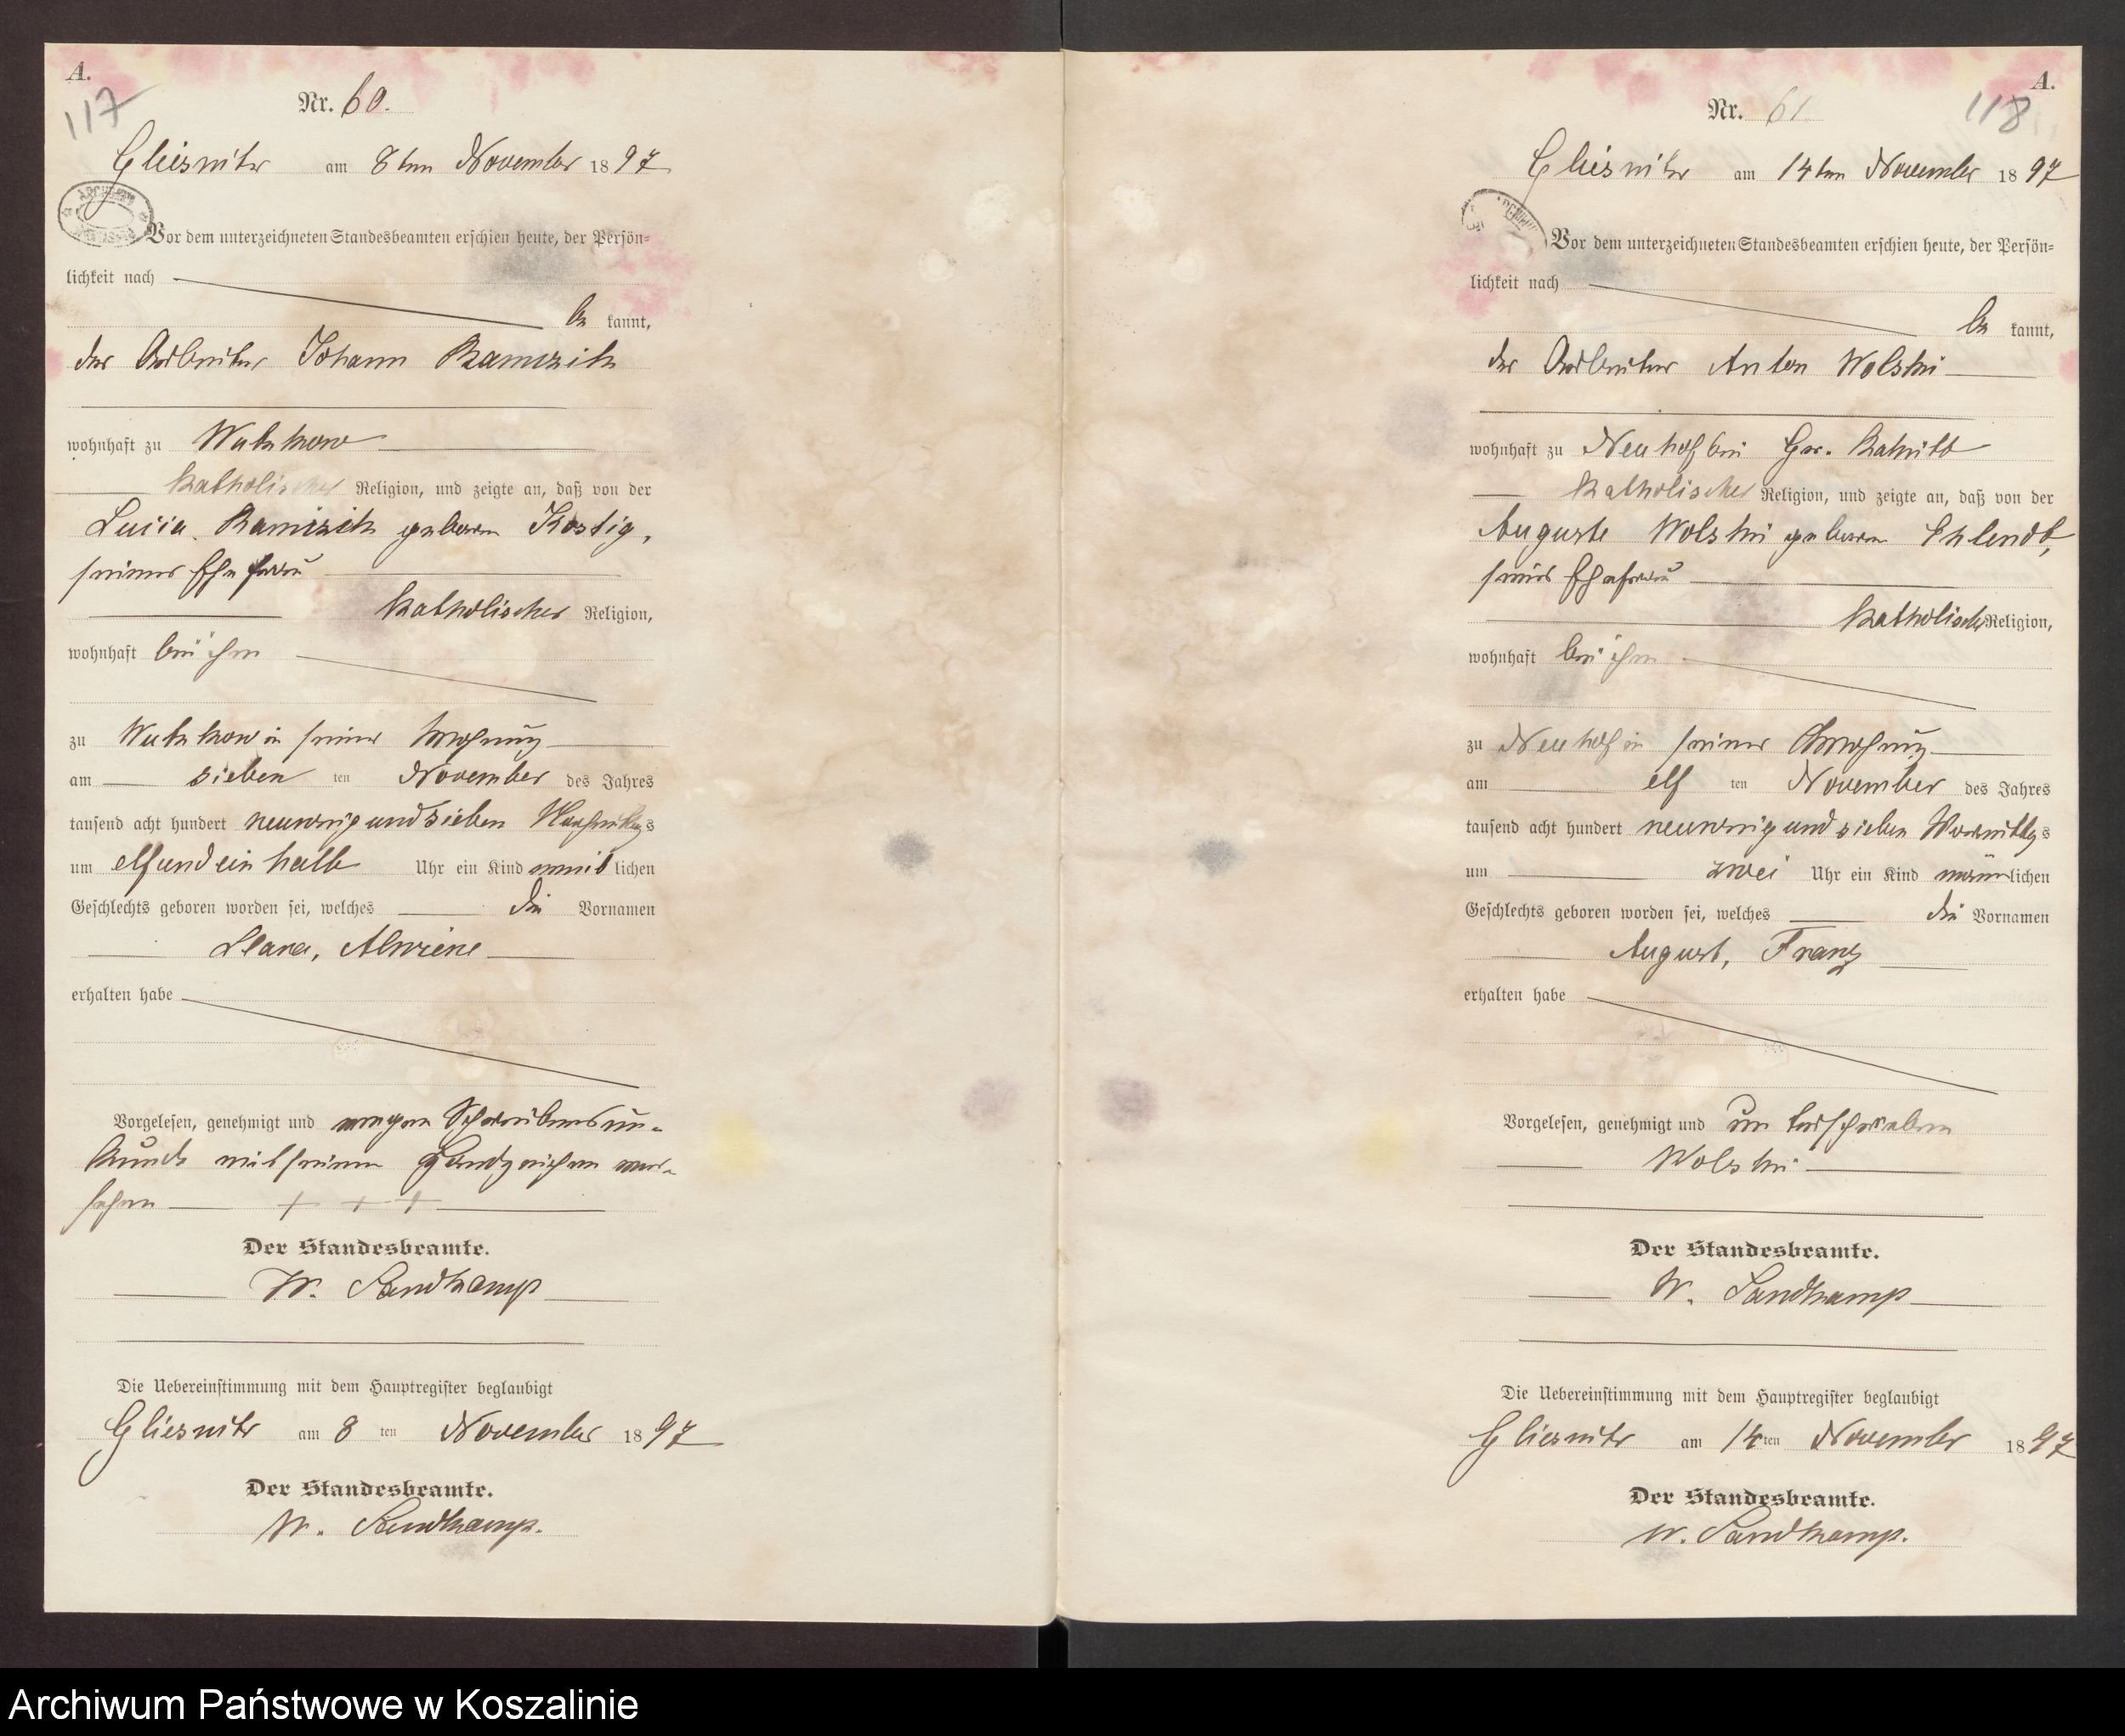 A.
117
Nr. 60.
Gliesnitz am 8ten November 1897
Vor dem unterzeichneten Standesbeamten erschien heute, der Persön=
lichkeit nach
be kannt,
der Arbeiter Johann
wohnhaft zu Wutzkow
katholischer Religion, und zeigte an, daß von der
Lucia geboren Kostig,
seiner Ehefrau
katholischer Religion,
wohnhaft bei ihm
zu Wutzkow in seiner Wohnung
am sieben ten November des Jahres
tausend acht hundert neunzig und sieben Nachmittags
um elf und ein halb Uhr ein Kind weiblichen
Geschlechts geboren worden sei, welches die Vornamen
Clara, Alwine
erhalten habe
Vorgelesen, genehmigt und wegen Schreibensun=
kunde mit seinem Handzeichen ver=
sehen + + +
Der Standesbeamte.
W. Sandkamp
Die Uebereinstimmung mit dem Hauptregister beglaubigt
Gliesnitz am 8 ten November 1897
Der Standesbeamte.
W. Sandkamp.
A.
118
Nr. 61.
Gliesnitz am 14ten November 1897
Vor dem unterzeichneten Standesbeamten erschien heute, der Persön=
lichkeit nach
be kannt,
der Arbeiter Anton Wolski
wohnhaft zu Neuhof bei Gr. Rakitt
katholischer Religion, und zeigte an, daß von der
Auguste Wolski geboren Ehlendt,
seine Ehefrau
katholischer Religion,
wohnhaft bei ihm
zu Neuhof in seiner Wohnung
am elf ten November des Jahres
tausend acht hundert neunzig und sieben Vormittags
um zwei Uhr ein Kind männlichen
Geschlechts geboren worden sei, welches die Vornamen
August, Franz
erhalten habe
Vorgelesen, genehmigt und unterschrieben
Wolski
Der Standesbeamte.
W. Sandkamp
Die Uebereinstimmung mit dem Hauptregister beglaubigt
Gliesnitz am 14 ten November 1897
Der Standesbeamte.
W. Sandkamp.
Archiwum Państwowe w Koszalinie